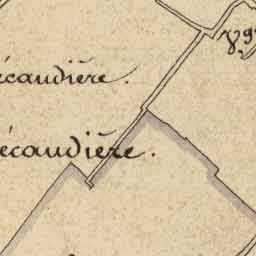 écaudière.
écaudière.